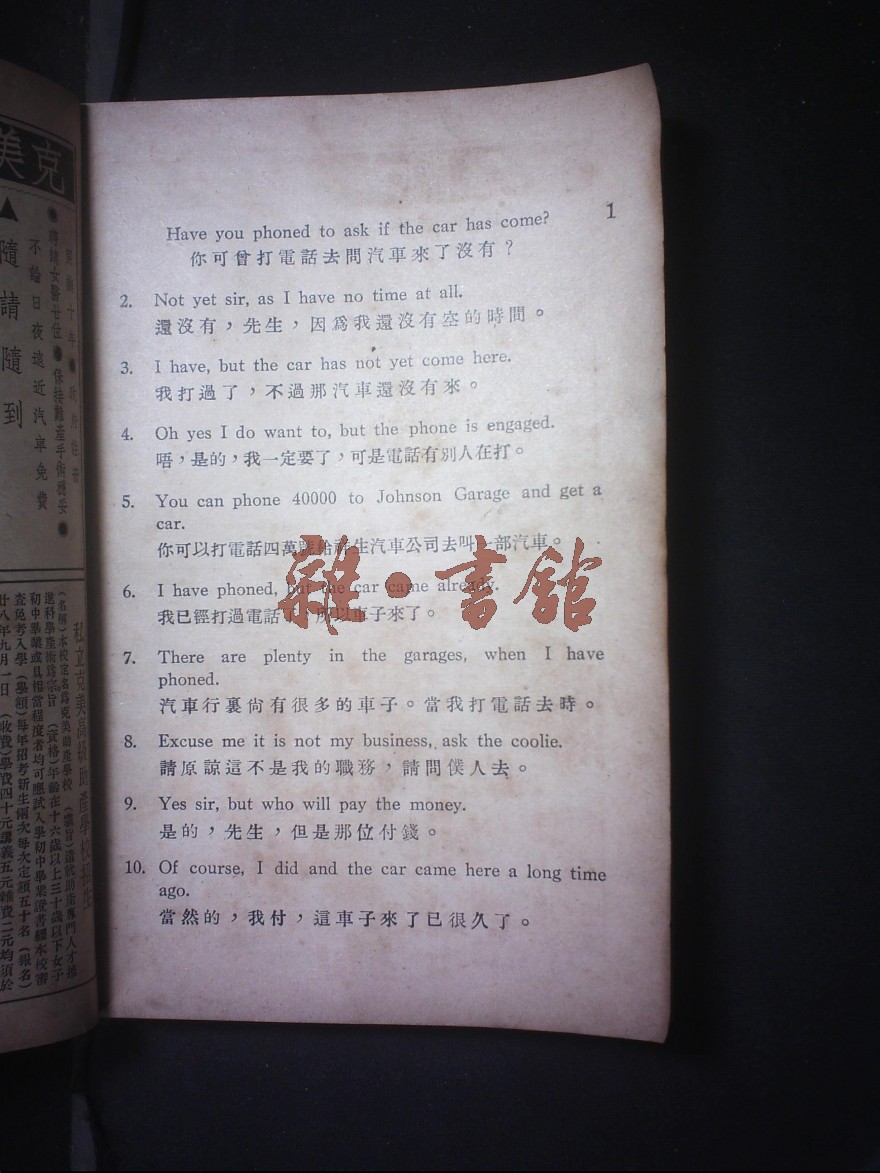 1
Have you phoned to ask if the car has come?
你可曾打電話去問汽車來了沒有？
2. Not yet sir, as I have no time at all.
還沒有，先生，因爲我還沒有空的時間。
3. I have, but the car has not yet come here.
我打過了，不過那汽車還沒有來。
4. Oh yes I do want to, but the phone is engaged.
唔，是的，我一定要了，可是電話有別人在打。
5. You can phone 40000 to Johnson Garage and get a
car.
你可以打電話四萬號給祥生汽車公司去叫一部汽車。
6. I have phoned, but the car came already.
我已經打過電話了，所以車子來了。
7. There are plenty in the garages, when I have
phoned.
汽車行裏尙有很多的車子。當我打電話去時。
8. Excuse me it is not my business, ask the coolie.
請原諒這不是我的職務，請問僕人去。
9. Yes sir, but who will pay the money.
是的，先生，但是那位付錢。
10. Of course, I did and the car came here a long time
ago.
當然的，我付，這車子來了已很久了。
雜·書館
克美
▲隨請隨到
不論日夜遠近汽車免費
私立克美高級助產學校招生
(名稱)本校定名爲克美助產學校
進科學產術爲宗旨 (資格)年齡在十六歲以上三十歲以下女子
初中畢業或具相當程度者均可應試入學初中畢業證書經本校審
查免考入學 (學額)每年招考新生兩次每次定額五十名 (報名)
廿八年九月一日 (收費)學費四十元講義五元雜費二元均須於